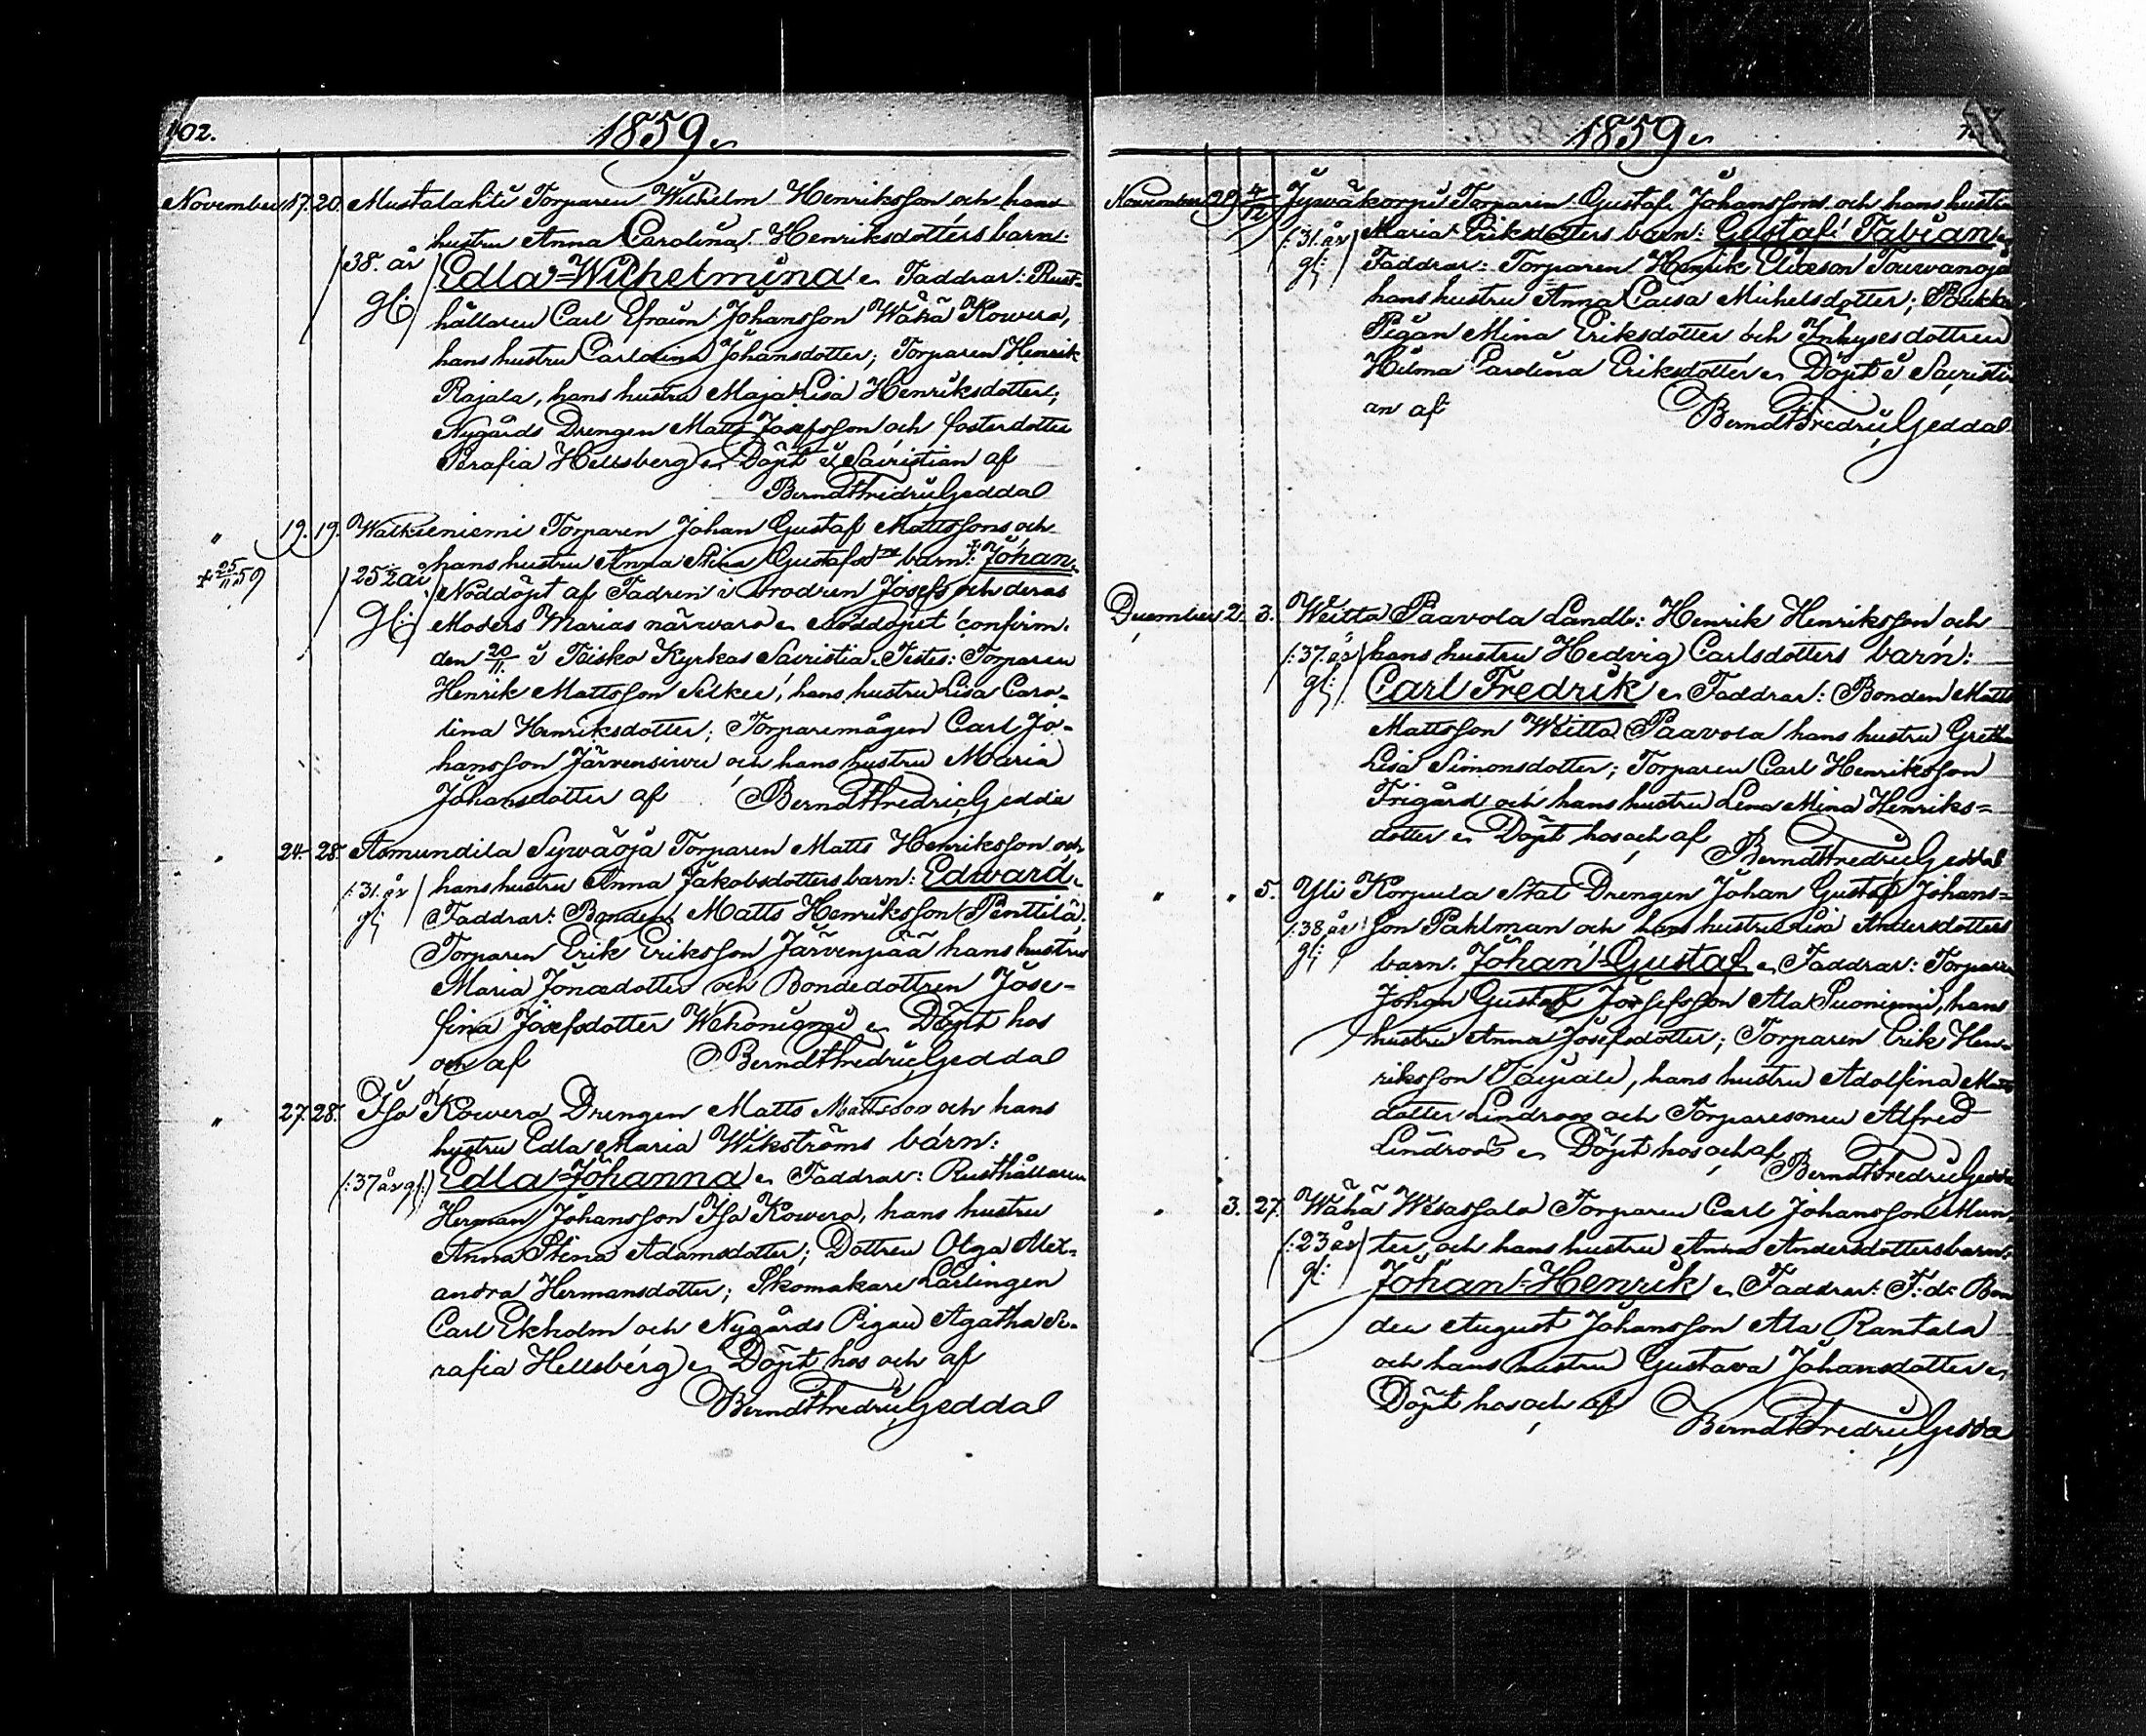 102.
1859
November 17. 20. Mustalahti Torparen Wilhelm Henriksson och hans
hustru Anna Carolina Henriksdotters barn:
/38. år gl:/ Edla Wilhelmina Faddrar: Rust-
hållaren Carl Efraim Johansson Wähä Kowero,
hans hustru Carolina Johansdotter; Torparen Henrik
Rajala, hans hustru Maja Lisa Henriksdotter;
Nygårds Drengen Matts Josefsson och fosterdotter
Serafia Hellsberg Döpt i Sacristian af
Berndt Fredric Geddal
" 19. 19. Walkeeniemi Torparen Johan Gustaf Mattssons och
+ 25/11 59 hans hustru Anna Stina Gustafsdr barn: Johan
/25 1/2 år gl:/ Nöddöpt af Fadren i Brodren Josefs och deras
Moders Marias närvaro Nöddopet confirm.
den 20/11 i Teisko Kyrkas Sacristia. Testes: Torparen
Henrik Mattsson Selkee, hans hustru Lisa Caro-
lina Henriksdotter; Torparemågen Carl Jo-
hansson Järvensivu och hans hustru Maria
Johansdotter af Berndt Fredric Gedda
" 24. 28. Asmundila Sywäoja Torparen Matts Henriksson och
/:31. år gl:/ hans hustru Anna Jakobsdotters barn: Edward
Faddrar: Bonden Matts Henriksson Penttilä;
Torparen Erik Eriksson Järvenpää hans hustru
Maria Jonædotter och Bondedottren Jose-
fina Josefsdotter Döpt hos
och af Berndt Fredric Geddal
" 27. 28. Iso Kowero Drengen Matts Mattsson och hans
hustru Edla Maria Wikströms barn:
/:37 år gl:/ Edla Johanna Faddrar: Rusthållaren
Herman Johansson Iso Kowero, hans hustru
Anna Stina Adamsdotter; Dottren Olga Alex-
andra Hermansdotter; Skomakare Lärlingen
Carl Ekholm och Nygårds Pigan Agatha Se-
rafia Hellsberg Döpt hos och af
Berndt Fredric Geddal
1859
November 29. 4/12 Jywäkorpi Torparen Gustaf Johanssons och hans hustru
/:31. år gl:/ Maria Eriksdotters barn: Gustaf Fabian
Faddrar: Torparen Henrik Eliæson Tourvanoja
hans hustru Anna Caisa Michelsdotter;
Pigan Mina Eriksdotter och Inhysesdottren
Hilma Carolina Eriksdotter Döpt i Sacristi-
an af Berndt Fredric Geddal
December 2. 3. Weitto Paavola Landb: Henrik Henriksson och
/:37. år gl:/ hans hustru Hedvig Carlsdotters barn:
Carl Fredrik Faddrar: Bonden Matts
Mattsson Weitto Paavola hans hustru Gretha
Lisa Simonsdotter; Torparen Carl Henriksson
Frigård och hans hustru Lena Mina Henriks-
dotter Döpt hos och af
Berndt Fredric Geddal
" " 5. Yli Korpula Stat Drengen Johan Gustaf Johans-
/:38 år gl:/ son Pahlman och hans hustru Lisa Andersdotters
barn: Johan Gustaf Faddrar: Torparen
Johan Gustaf Josefsson Ala Suoniemi, hans
hustru Anna Josefsdotter; Torparen Erik Hen-
riksson hans hustru Adolfina Matts
dotter Lindroos och Torparesonen Alfred
Lindroos Döpt hos och af
Berndt Fredric Gedda
" 3. 27. Wähä Wesassalo Torparen Carl Johansson Mun-
/:23 år gl:/ ter, och hans hustru Anna Andersdotters barn:
Johan Henrik Faddrar: F: d: Bon
den August Johansson Ala Rantala
och hans hustru Gustava Johansdotter
Döpt hos och af Berndt Fredric Gedda